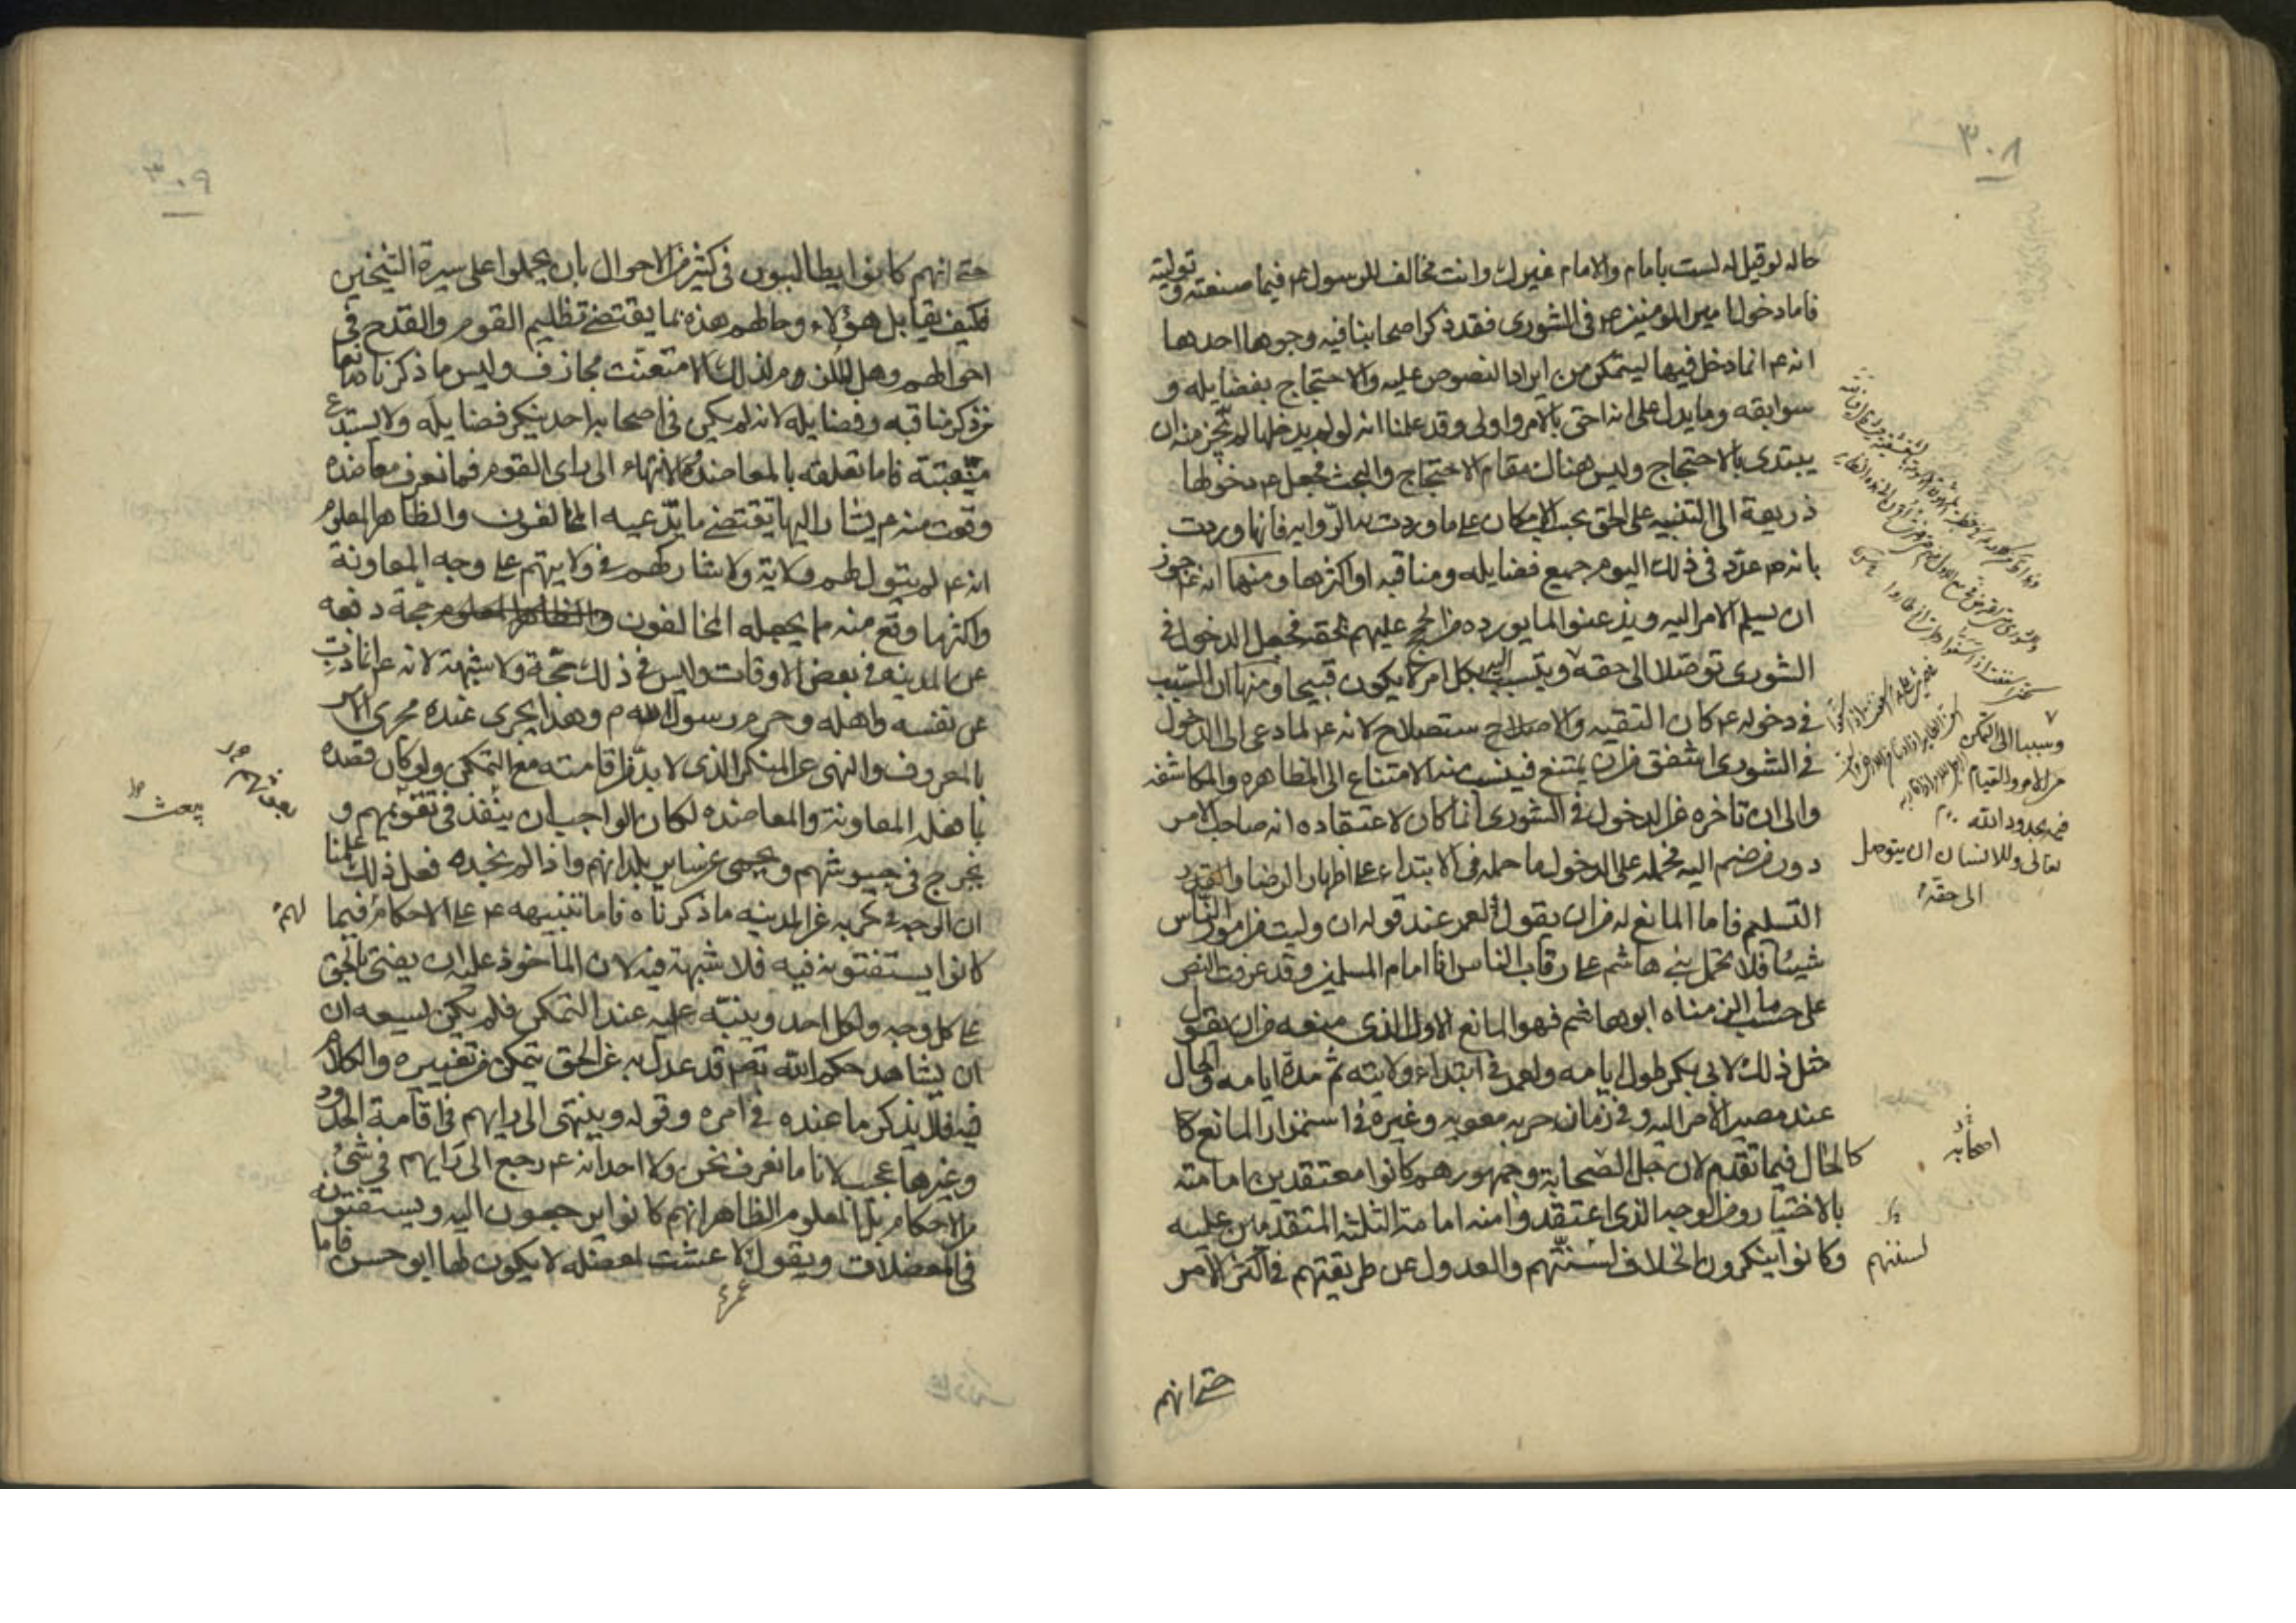 ٣٠٨
حاله لو قيل له لست بامام والامام غيرك وانت مخالف للرسول ع فيما صنعته وتوليته
فاما دخول امير المومنين ع في الشورى فقد ذكر اصحابنا فيه وجوها احدها
انه ع انما دخل فيها ليتمكن من ايراد النصوص عليه والاحتجاج بفضايله و
سوابقه وما يدل على انه احق بالامر واولى وقد علمنا انه لو لم يدخلها لم يجز منه ان
يبتدى بالاحتجاج وليس هناك مقام الاحتجاج والبحث فجعل ع دخولها
ذريعة الى التنبيه على الحق بحسب الامكان على ما وردت به الرواية فانها وردت
بانه ع عدد في ذلك اليوم جميع فضايله ومناقبه او اكثرها ومنها انه ع جوز
ان يسلم الامر اليه ويذعنوا لما يورده من الحجج عليهم بحقه فجعل الدخول في
الشورى توصلا الى حقه ويتسبب اليه بكل امر لا يكون قبيحا ومنها ان السبب
في دخوله ع كان التقيه والاصلاح ستصلاح لانه ع لما دعى الى الدخول
في الشورى اشفق من ان يمتنع فينسب منه الامتناع الى المظاهره والمكاشفه
والى ان تاخره عن الدخول في الشورى انما كان لاعتقاده انه صاحب الامر
دون من ضم اليه فحمله على الدخول ما حمله في الابتداء على اظهار الرضا و
التسليم فاما المانع له من ان يقول لعمر عند قوله ان وليت من امور الناس
شيئا فلا تحمل بني هاشم على رقاب الناس انا امام المسلمين وقد عرفت النص
على حسب ما الزمناه ابو هاشم فهو المانع الاول الذي منعه من ان يقول
مثل ذلك لابي بكر طول ايامه ولعمر في ابتداء ولايته ثم مدة ايامه والحال
عند مصير الامر اليه وفي زمان حربه معويه وغيره في استمرار المانع كا
كالحال فيما تقدم لان جل الصحابة وجمهورهم كانوا معتقدين امامته
بالاختيار ومن الوجه الذي اعتقدوا منه امامة الثلثه المتقدمين عليه
وكانوا ينكرون الخلاف لسنتهم والعدول عن طريقتهم في اكثر الامر
وسببا الى التمكن
من الامر والقيام
فيه بحدود الله
تعالى وللانسان ان يتوصل
الى حقه
اصحابه
لسننهم
حتى انهم
٣٠٩
حتى انهم كانوا يطالبون في كثير من الاحوال بان يحملوا على سيرة الشيخين
فكيف يقابل هؤلاء وحالهم هذه بما يقتضي تظليم القوم والقدح في
احوالهم وهل الملزوم لذلك الا متعنت مجازف وليس ما ذكرناه انما
من ذكر مناقبه وفضايله لانه لم يكن في اصحابه احد ينكر فضايله ولا يستبدع
فاما تعلقه بالمعاضده والانتهاء الى راى القوم فما نعرف معاضده
وقعت منه ع يشار اليها يقتضي ما يدعيه المخالفون والظاهر المعلوم
انه ع لم يتول لهم ولاية ولا شاركهم في ولايتهم على وجه المعاونة
واكثر ما وقع منه مما يجعله المخالفون والظاهر المعلوم حجة دفعه
عن المدينه في بعض الاوقات وليس في ذلك حجة ولا شبهة لانه ع انما ذب
عن نفسه واهله وحرم رسول الله ع وهذا يجرى عنده مجرى الامر
بالمعروف والنهى عن المنكر الذي لا بد من اقامته مع التمكن ولو كان قصده
بما فعله المعاونة والمعاضده لكان الواجب ان ينفذ في تقويتهم و
يخرج في جيوشهم ويحمى عن ساير بلدانهم واذا لم نجده فعل ذلك علمنا
ان الوجه في حربه عن المدينه ما ذكرناه فاما تنبيهه ع على الاحكام فيما
كانوا يستفتونه فيه فلا شبهة فيه لان الماخوذ عليه ان يفتى بالحق
على كل وجه ولكل احد وينبه عليه عند التمكن فلم يكن يسعه ان
ان يشاهد حكم الله تعالى قد عدل به عن الحق يتمكن من تغييره والكلام
فيه فلا يذكر ما عنده في امره وقوله وينتهى الى رايهم في اقامة الحدود
وغيرها عجب لانا ما نعرف نحن ولا احد انه ع رجع الى رايهم في شئ
من الاحكام بل المعلوم الظاهر انهم كانوا يرجعون اليه ويستفتونه
في المعضلات ويقول لا عشت لمعضله لا يكون لها ابو حسن فاما
عمر
بعوثهم
يبعث
لهم